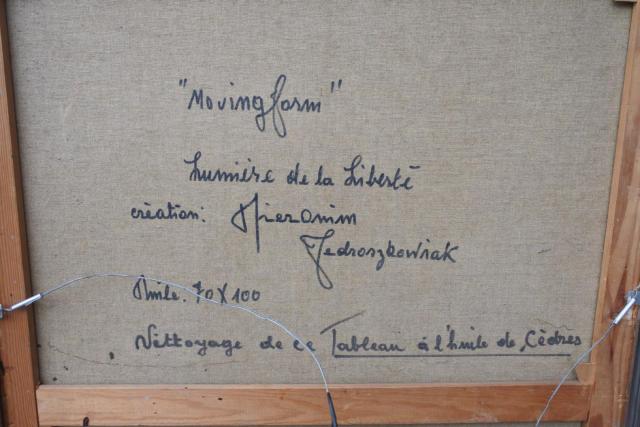 "Moving form"
Lumière de la Liberté
création: Hieronim
Jedroszkowiak
Huile. 70 X 100
Nettoyage de ce Tableau à l'huile de Cèdres